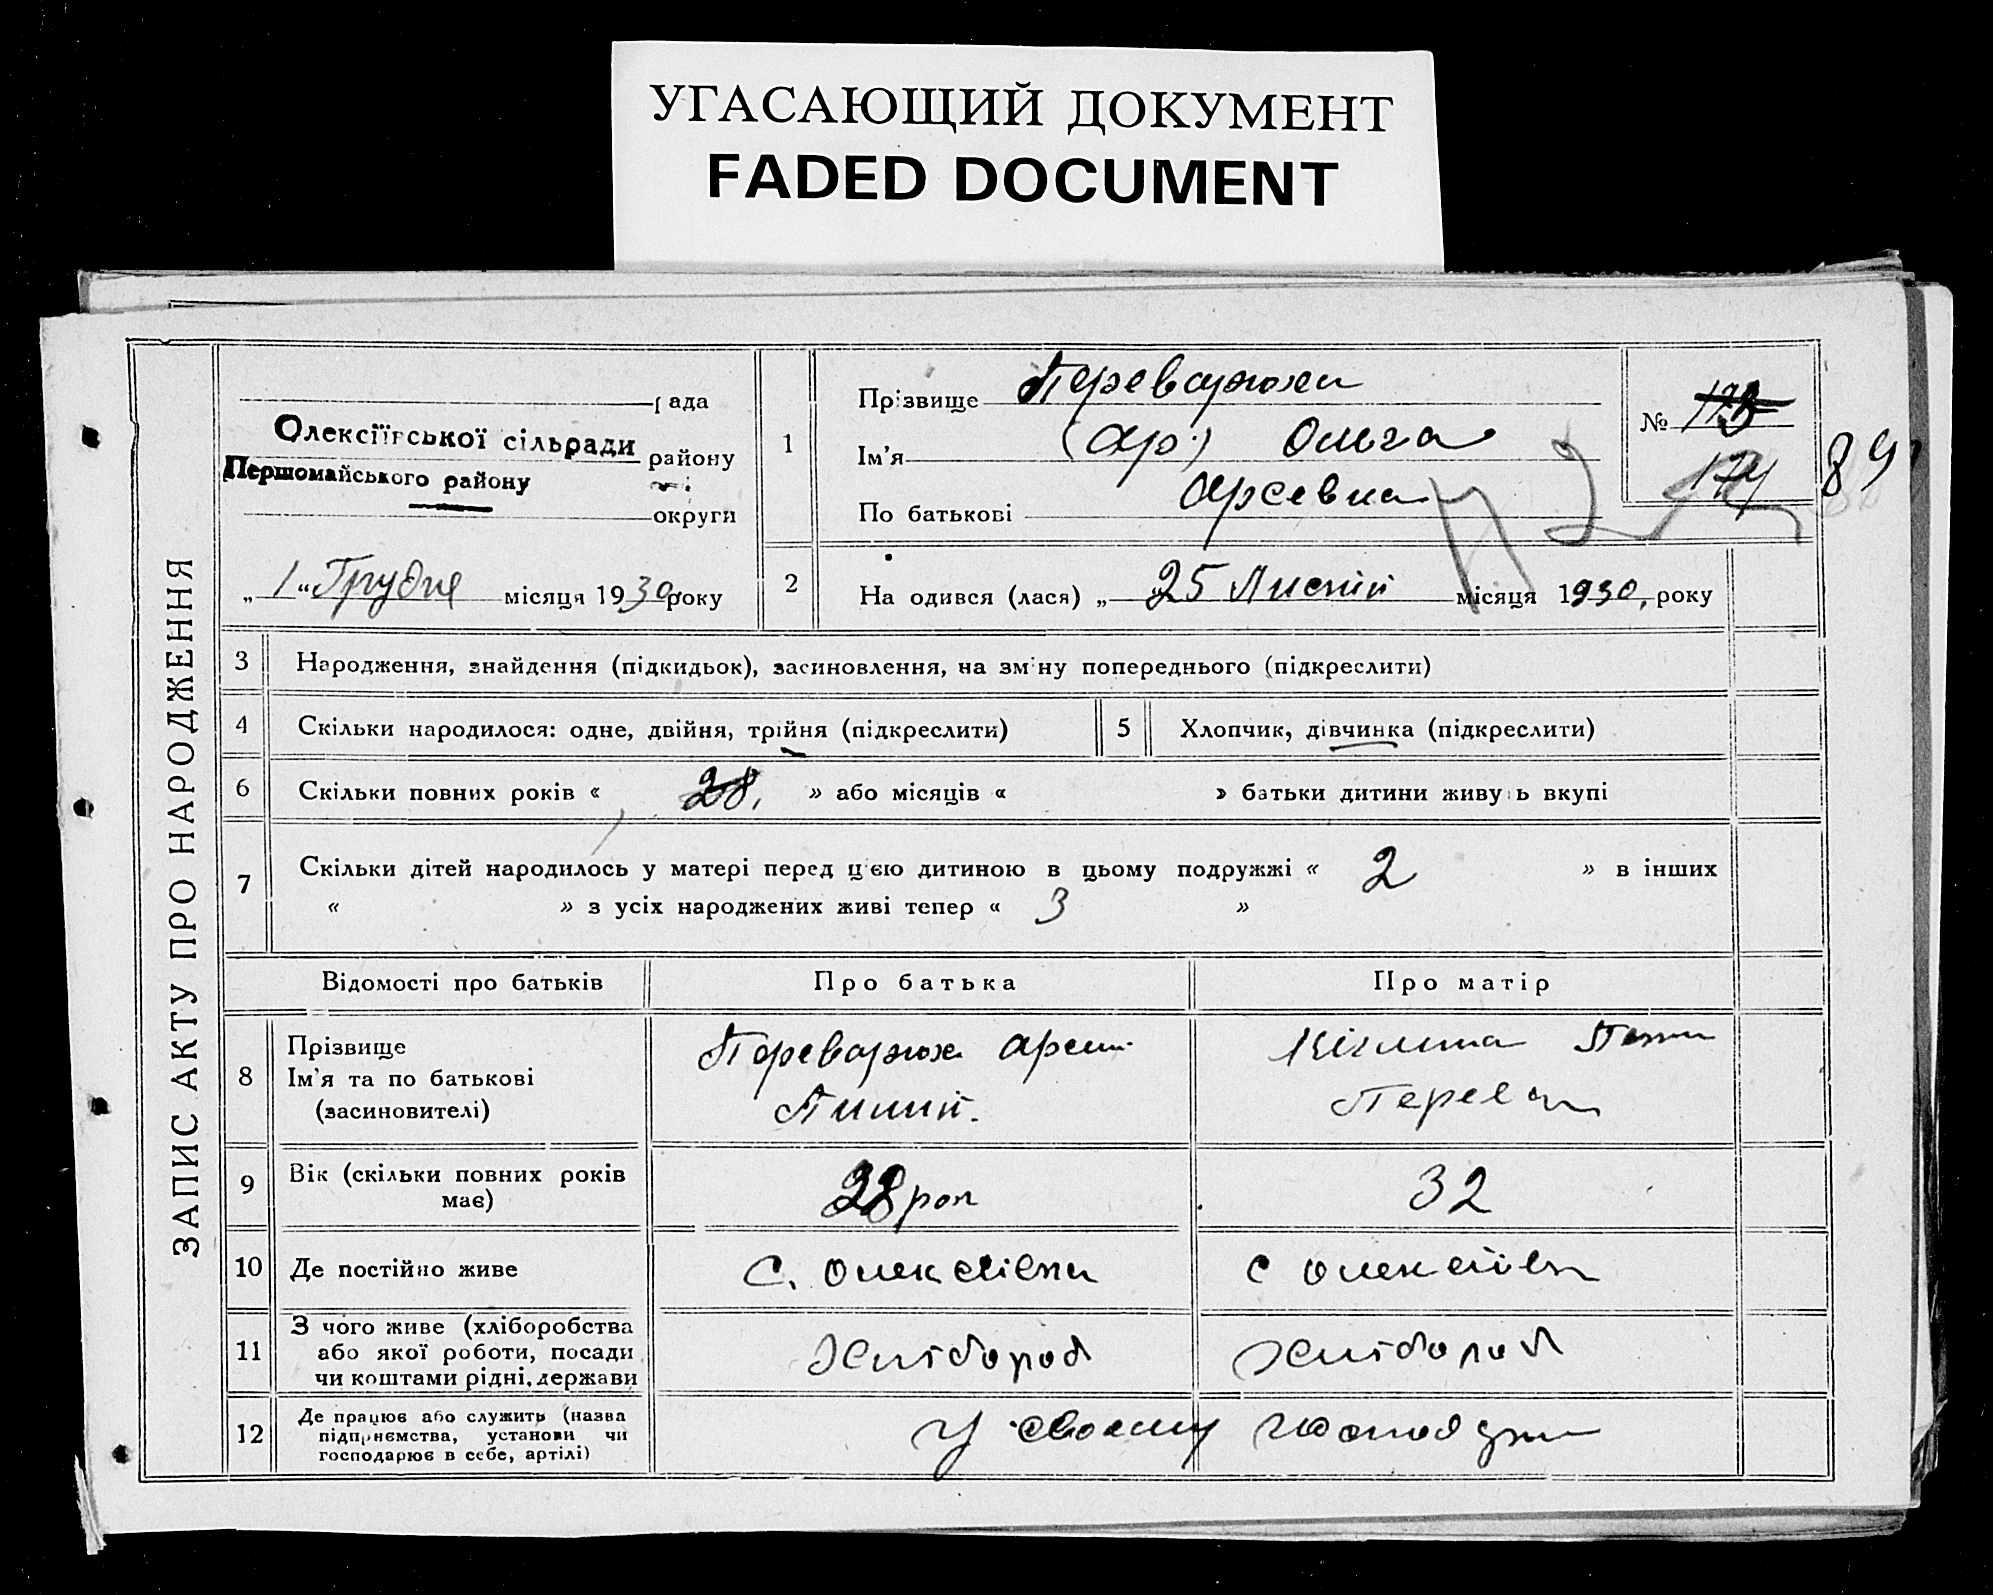 УГАСАЮЩИЙ ДОКУМЕНТ
FADED DOCUMENT
ЗАПИС АКТУ ПРО НАРОДЖЕННЯ
рада
Олексіївської сільради району
Первомайського району
округи
„ 1 “ Грудня місяця 1930 року
1
Прізвище
Ім'я (Ар.) Ольга
По батькові
№ 173
174
89
2
На одився (лася) „ 25 місяця 1930, року
3 Народження, знайдення (підкидьок), засиновлення, на зміну попереднього (підкреслити)
4 Скільки народилося: одне, двійня, трійня (підкреслити)
5 Хлопчик, дівчинка (підкреслити)
6 Скільки повних років « 28, » або місяців « » батьки дитини живуть вкупі
7 Скільки дітей народилось у матері перед цією дитиною в цьому подружжі « 2 » в інших
« » з усіх народжених живі тепер « 3 »
Відомості про батьків Про батька Про матір
8 Прізвище
Ім'я та по батькові
(засиновителі)
9 Вік (скільки повних років
має)
28 рок 32
10 Де постійно живе
11 З чого живе (хліборобства
або якої роботи, посади
чи коштами рідні, держави
Хлібороб Хлібороб
12 Де працює або служить (назва
підприємства, установи чи
господарює в себе, артілі)
У своєму